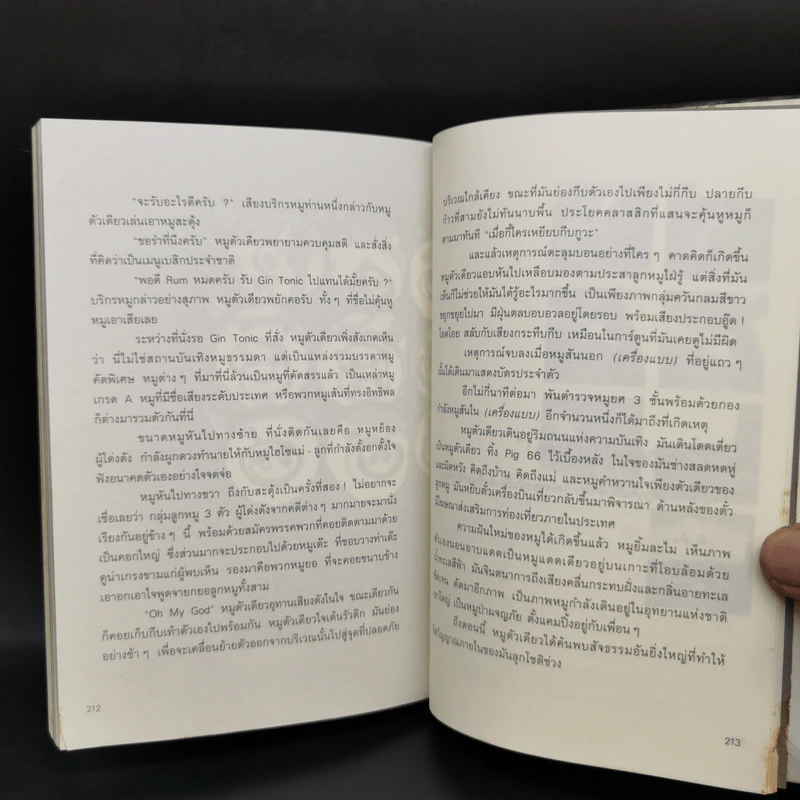 "จะรับอะไรดีครับ ?" เสียงบริกรหมูท่านหนึ่งกล่าวกับหมู
ตัวเดียวเล่นเอาหมูสะดุ้ง
"ขอรำที่นึงครับ" หมูตัวเดียวพยายามควบคุมสติ และสั่งสิ่ง
ที่คิดว่าเป็นเมนูเบสิกประจำชาติ
"พอดี Rum หมดครับ รับ Gin Tonic ไปแทนได้มั้ยครับ ?"
บริกรหมูกล่าวอย่างสุภาพ หมูตัวเดียวพยักคอรับ ทั้ง ๆ ที่ชื่อไม่คุ้นหู
หมูเอาเสียเลย
ระหว่างที่นั่งรอ Gin Tonic ที่สั่ง หมูตัวเดียวเพิ่งสังเกตเห็น
ว่า นี่ไม่ใช่สถานบันเทิงหมูธรรมดา แต่เป็นแหล่งรวมบรรดาหมู
คัดพิเศษ หมูต่าง ๆ ที่มาที่นี่ล้วนเป็นหมูที่คัดสรรแล้ว เป็นเหล่าหมู
เกรด A หมูที่มีชื่อเสียงระดับประเทศ หรือพวกหมูเส้นที่ทรงอิทธิพล
ก็ต่างมารวมตัวกันที่นี่
ขนาดหมูหันไปทางซ้าย ที่นั่งติดกันเลยคือ หมูหย็อง
ผู้โด่งดัง กำลังผูกดวงทำนายให้กับหมูไฮโซแม่ - ลูกที่กำลังตั้งอกตั้งใจ
ฟังอนาคตตัวเองอย่างใจจดจ่อ
หมูหันไปทางขวา ถึงกับสะดุ้งเป็นครั้งที่สอง ! ไม่อยากจะ
เชื่อเลยว่า กลุ่มลูกหมู 3 ตัว ผู้โด่งดังจากคดีต่าง ๆ มากมายจะมานั่ง
เรียงกันอยู่ข้าง ๆ นี้ พร้อมด้วยสมัครพรรคพวกที่คอยติดตามมาด้วย
เป็นคอกใหญ่ ซึ่งส่วนมากจะประกอบไปด้วยหมูเต๊ะ ที่ชอบวางท่าเต๊ะ
ดูน่าเกรงขามแก่ผู้พบเห็น รองมาคือพวกหมูยอ ที่จะคอยขนาบข้าง
เอาอกเอาใจพูดจายกยอลูกหมูทั้งสาม
"Oh My God" หมูตัวเดียวอุทานเสียงดังในใจ ขณะเดียวกัน
ก็คอยเก็บกีบเท้าตัวเองไปพร้อมกัน หมูตัวเดียวใจเต้นรัวดิก มันย่อง
อย่างช้า ๆ เพื่อจะเคลื่อนย้ายตัวออกจากบริเวณนั้นไปสู่จุดที่ปลอดภัย
212
บริเวณใกล้เคียง ขณะที่มันย่องกีบตัวเองไปเพียงไม่กี่กีบ ปลายกีบ
ก้าวที่สามยังไม่ทันนาบพื้น ประโยคคลาสสิกที่แสนจะคุ้นหูหมูก็
ตามมาทันที "เมื่อกี้ใครเหยียบกีบกูวะ"
และแล้วเหตุการณ์ตะลุมบอนอย่างที่ใคร ๆ คาดคิดก็เกิดขึ้น
หมูตัวเดียวแอบหันไปเหลือบมองตามประสาลูกหมูใฝ่รู้ แต่สิ่งที่มัน
เห็นก็ไม่ช่วยให้มันได้รู้อะไรมากขึ้น เป็นเพียงภาพกลุ่มควันกลมสีขาว
ขยุกขยุยไปมา มีฝุ่นตลบอบอวลอยู่โดยรอบ พร้อมเสียงประกอบอู๊ด !
โอดโอย สลับกับเสียงกระทืบกีบ เหมือนในการ์ตูนที่มันเคยดูไม่มีผิด
เหตุการณ์จบลงเมื่อหมูสันนอก (เครื่องแบบ) ที่อยู่แถว ๆ
นั้นได้เดินมาแสดงบัตรประจำตัว
อีกไม่กี่นาทีต่อมา พันตำรวจหมูยศ 3 ชั้นพร้อมด้วยกอง
กำลังหมูสันใน (เครื่องแบบ) อีกจำนวนหนึ่งก็ได้มาถึงที่เกิดเหตุ
หมูตัวเดียวเดินอยู่ริมถนนแห่งความบันเทิง มันเดินโดดเดี่ยว
เป็นหมูตัวเดียว ทิ้ง Pig 66 ไว้เบื้องหลัง ในใจของมันช่างสลดหดหู่
และผิดหวัง คิดถึงบ้าน คิดถึงแม่ และหมูคำหวานใจเพียงตัวเดียวของ
ลูกหมู มันหยิบตั๋วเครื่องบินเที่ยวกลับขึ้นมาพิจารณา ด้านหลังของตั๋ว
มีโฆษณาส่งเสริมการท่องเที่ยวภายในประเทศ
ความฝันใหม่ของหมูได้เกิดขึ้นแล้ว หมูยิ้มละไม เห็นภาพ
ตัวเองนอนอาบแดดเป็นหมูแดดเดียวอยู่บนเกาะที่โอบล้อมด้วย
น้ำทะเลสีฟ้า มันจินตนาการถึงเสียงคลื่นกระทบฝั่งและกลิ่นอายทะเล
ชัดเจน ตัดมาอีกภาพ เป็นภาพหมูกำลังเดินอยู่ในอุทยานแห่งชาติ
เขาใหญ่ เป็นหมูป่าผจญภัย ตั้งแคมป์ปิ้งอยู่กับเพื่อน ๆ
ถึงตอนนี้ หมูตัวเดียวได้ค้นพบสัจธรรมอันยิ่งใหญ่ที่ทำให้
จิตวิญญาณภายในของมันลุกโชติช่วง
213